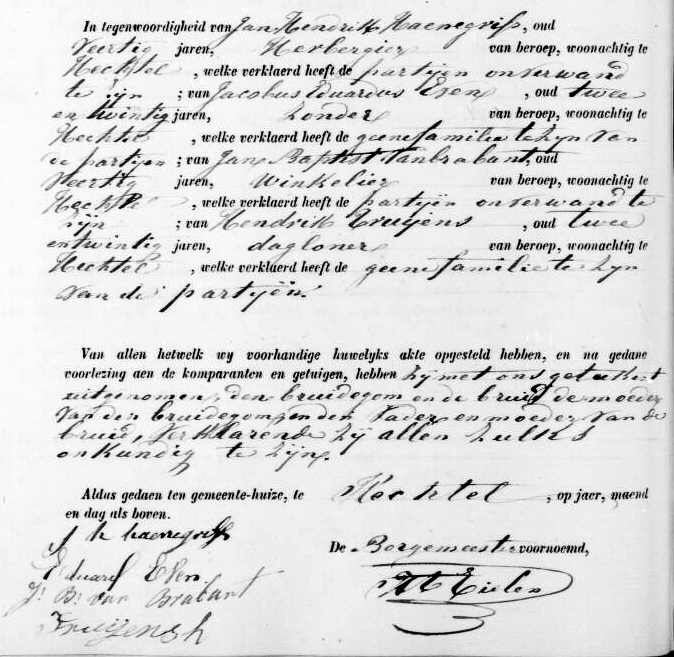 In tegenwoordigheid van Jan Hendrik Haenegrifs, oud
Veertig jaren, Herbergier van beroep, woonachtig te
Hechtel, welke verklaerd heeft de partijen onverwand
te zijn ; van Jacobus Eduardus Even, oud twee
en twintig jaren, zonder van beroep, woonachtig te
Hechtel, welke verklaerd heeft de geene familie te zyn van
de partijen ; van Jan Baptist Vanbrabant, oud
Veertig jaren, Winkelier van beroep, woonachtig te
Hechtel, welke verklaerd heeft de partijen onverwand te
zijn ; van Hendrik Truijens, oud twee
entwintig jaren, dagloner van beroep, woonachtig te
Hechtel, welke verklaerd heeft de geene familie te zyn
van de partijen.
Van allen hetwelk wy voorhandige huwelyks akte opgesteld hebben, en na gedane
voorlezing aen de komparanten en getuigen, hebben zij met ons geteekent
uitgenomen, den bruidegom en de bruid de moeder
van den bruidegom en den vader en moeder van de
bruid, verklarende zij allen zulks
onkundig te zijn.
Aldus gedaen ten gemeente-huize, te Hechtel, op jaer, maend
en dag als boven.
J h haenegrifs
De Borgemeester voornoemd,
Eduard Even
J. B. van Brabant
Truijens h